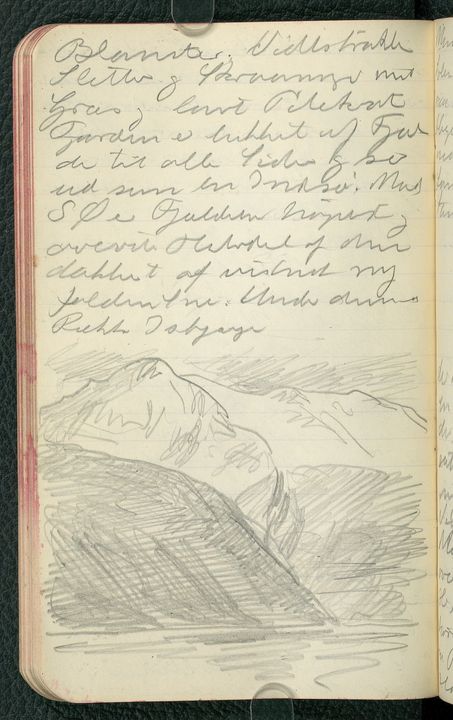 Blomster. Vidtstrakte
Sletter og Skraaninger med
Græs og lavt Pilekrat
Fjorden er lukket af Fjel
de til alle Sider og ser
ud som en Indsø. Mod
S Ø er Fjeldene højest og
øverste Halvdel af dem
dækket af ny
falden Sne. Under denne
Række Isbjerge